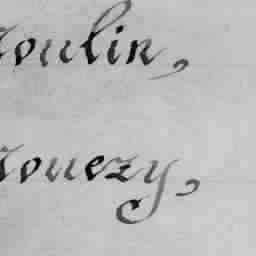 oulin,
ouezy,